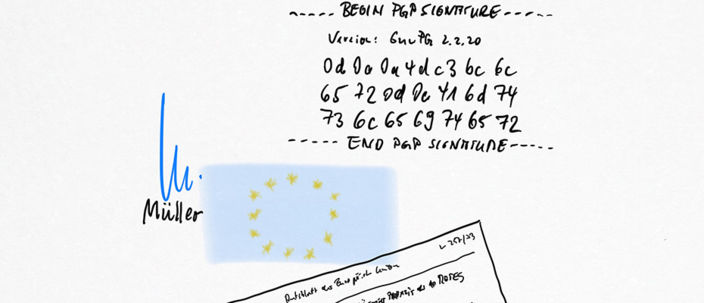 ----- BEGIN PGP SIGNATURE-----
Version: GnuPG 2.2.20
0d 0a 0a 4d c3 bc 6c
65 72 0d 0a 41 6d 74
73 6c 65 69 74 65 72
----- END PGP SIGNATURE-----
Müller
L 257/73
Amtsblatt der Europäischen Union